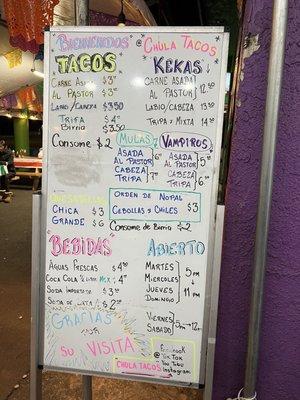 Bienvenedos @ Chula Tacos
TACOS
Carne Asada $3
Al Pastor $3
Labio/Cabeza $3.50
Tripa $4
Birria $3.50
Consome $2
KEKAS
Carne Asada
Al Pastor 12.50
Labio/Cabeza 13.50
Tripa x Mixta 14.50
MULAS
ASADA
AL PASTOR 6
CABEZA
TRIPA 7
VAMPIROS
ASADA
AL PASTOR 5
CABEZA
TRIPA 6
CHICA $3
GRANDE $6
ORDEN DE NOPAL
CEBOLLAS y CHILES $3
Consome de Birria $2
BEBIDAS
AGUAS FRESCAS $4
COCA COLA MEX $4
SODA $3
SODA DE LATA $2
ABIERTO
MARTES
MIERCOLES
JUEVES
DOMINGO
5pm
11 pm
VIERNES
SABADO
5pm-12
GRACIAS
POR
SU VISITA
@
Facebook
Tik Tok
You Tube
Instagram
CHULA TACOS